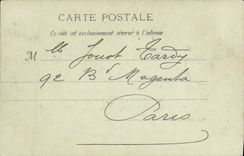 CARTE POSTALE
Ce côté est exclusivement réservé à l'adresse
Mlle Jouot Tardy
92 Bd Magenta
Paris